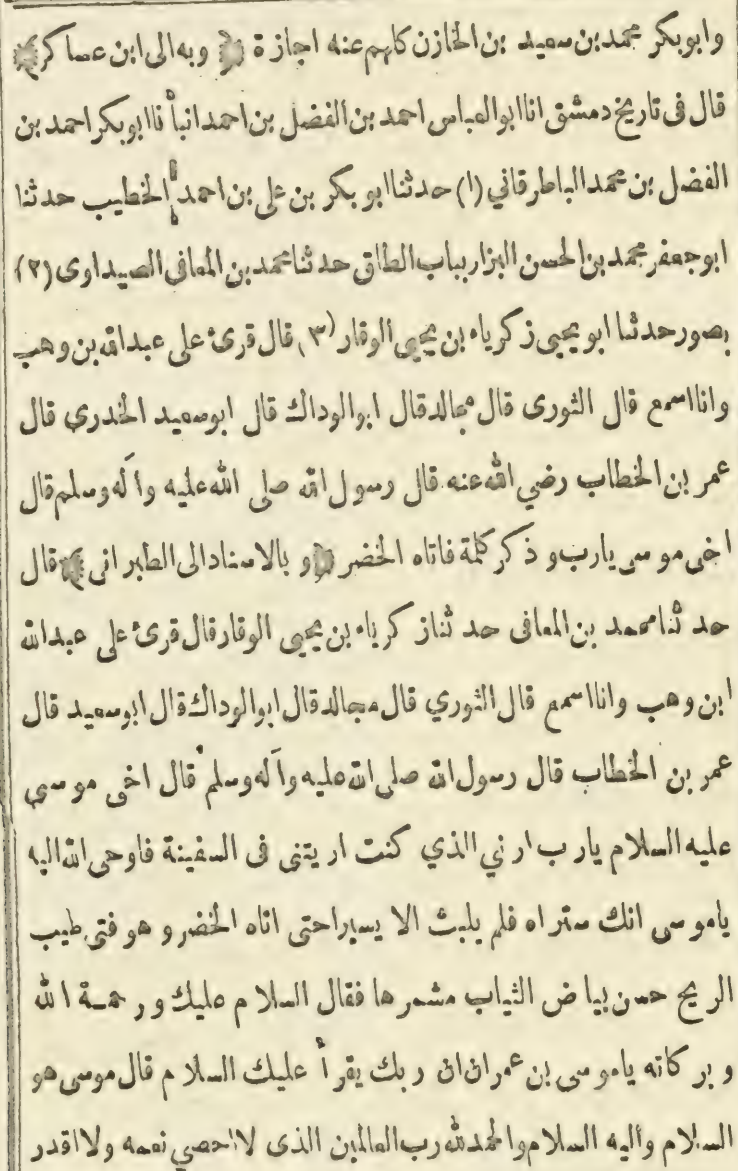 وابوبكر محمد بن سعيد بن الخازن كلهم عنه اجازة ﴿ وبه الى ابن عساكر﴾
قال فى تاريخ دمشق انا ابو العباس احمد بن الفضل بن احمد انبأ نا ابو بكر احمد بن
الفضل بن محمد الباطرقاني (١) حدثنا ابو بكر بن على بن احمد الخطيب حدثنا
ابو جعفر محمد بن الحسن البزار بباب الطاق حدثنا محمد بن المعافى الصيداوى (٢)
بصور حدثنا ابو يحيى زكرياء بن يحيى الوقار (٣) قال قرئ على عبدالله بن وهب
وانا اسمع قال الثورى قال مجالد قال ابو الوداك قال ابو سعيد الخدرى قال
عمر بن الخطاب رضي الله عنه قال رسول الله صلى الله عليه وآله وسلم قال
اخى موسى يارب و ذكر كلمة فاتاه الخضر ﴿و بالاسناد الى الطبرانى﴾ قال
حد ثنا محمد بن المعافى حد ثنا زكرياء بن يحيى الوقار قال قرئ على عبدالله
ابن وهب وانا اسمع قال الثوري قال مجالد قال ابو الوداك قال ابو سعيد قال
عمر بن الخطاب قال رسول الله صلى الله عليه وآله وسلم قال اخى موسى
عليه السلام يارب ارني الذي كنت اريتنى فى السفينة فاوحى الله اليه
ياموسى انك ستراه فلم يلبث الا يسيرا حتى اتاه الخضر و هو فتى طيب
الريح حسن بياض الثياب مشمرها فقال السلام عليك و رحمة الله
و بركاته ياموسى بن عمران ان ربك يقرأ عليك السلام قال موسى هو
السلام واليه السلام والحمدلله رب العالمين الذى لااحصي نعمه ولااقدر